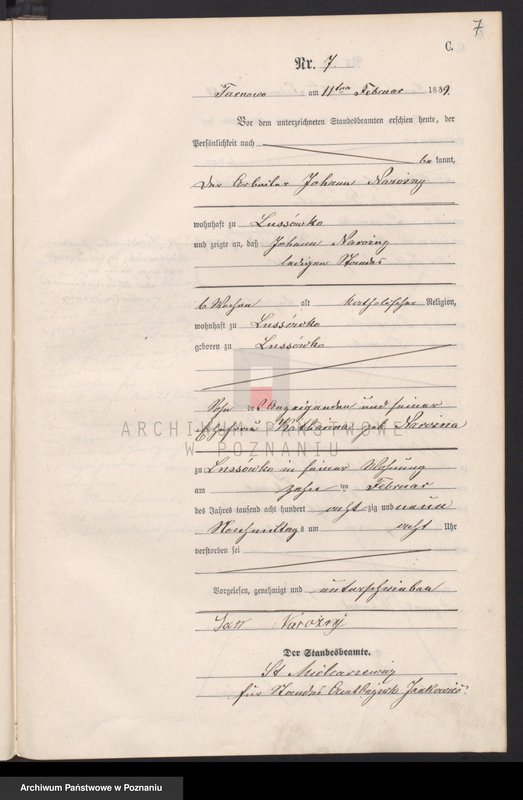 7
C.
Nr. 7
Tarnowo am 11ten Februar 1889.
Vor dem unterzeichneten Standesbeamten erschien heute, der
Persönlichkeit nach
bekannt,
der Arbeiter Johann
wohnhaft zu Lussówko
und zeigte an, daß Johann
ledigen Standes
6 Wochen alt katholischer Religion,
wohnhaft zu Lussówko
geboren zu Lussówko
Sohn des Anzeigenden und seiner
Ehefrau Katharina geb.
ARCHIWUM PAŃSTWOWE
W POZNANIU
zu Lussówko in seiner Wohnung
am zehn ten Februar
des Jahres tausend acht hundert acht zig und neun
Nachmittags um acht Uhr
verstorben sei
Vorgelesen, genehmigt und unterschrieben
Jan Narożny
Der Standesbeamte.
St
für Standes Amtsbezirk
Archiwum Państwowe w Poznaniu